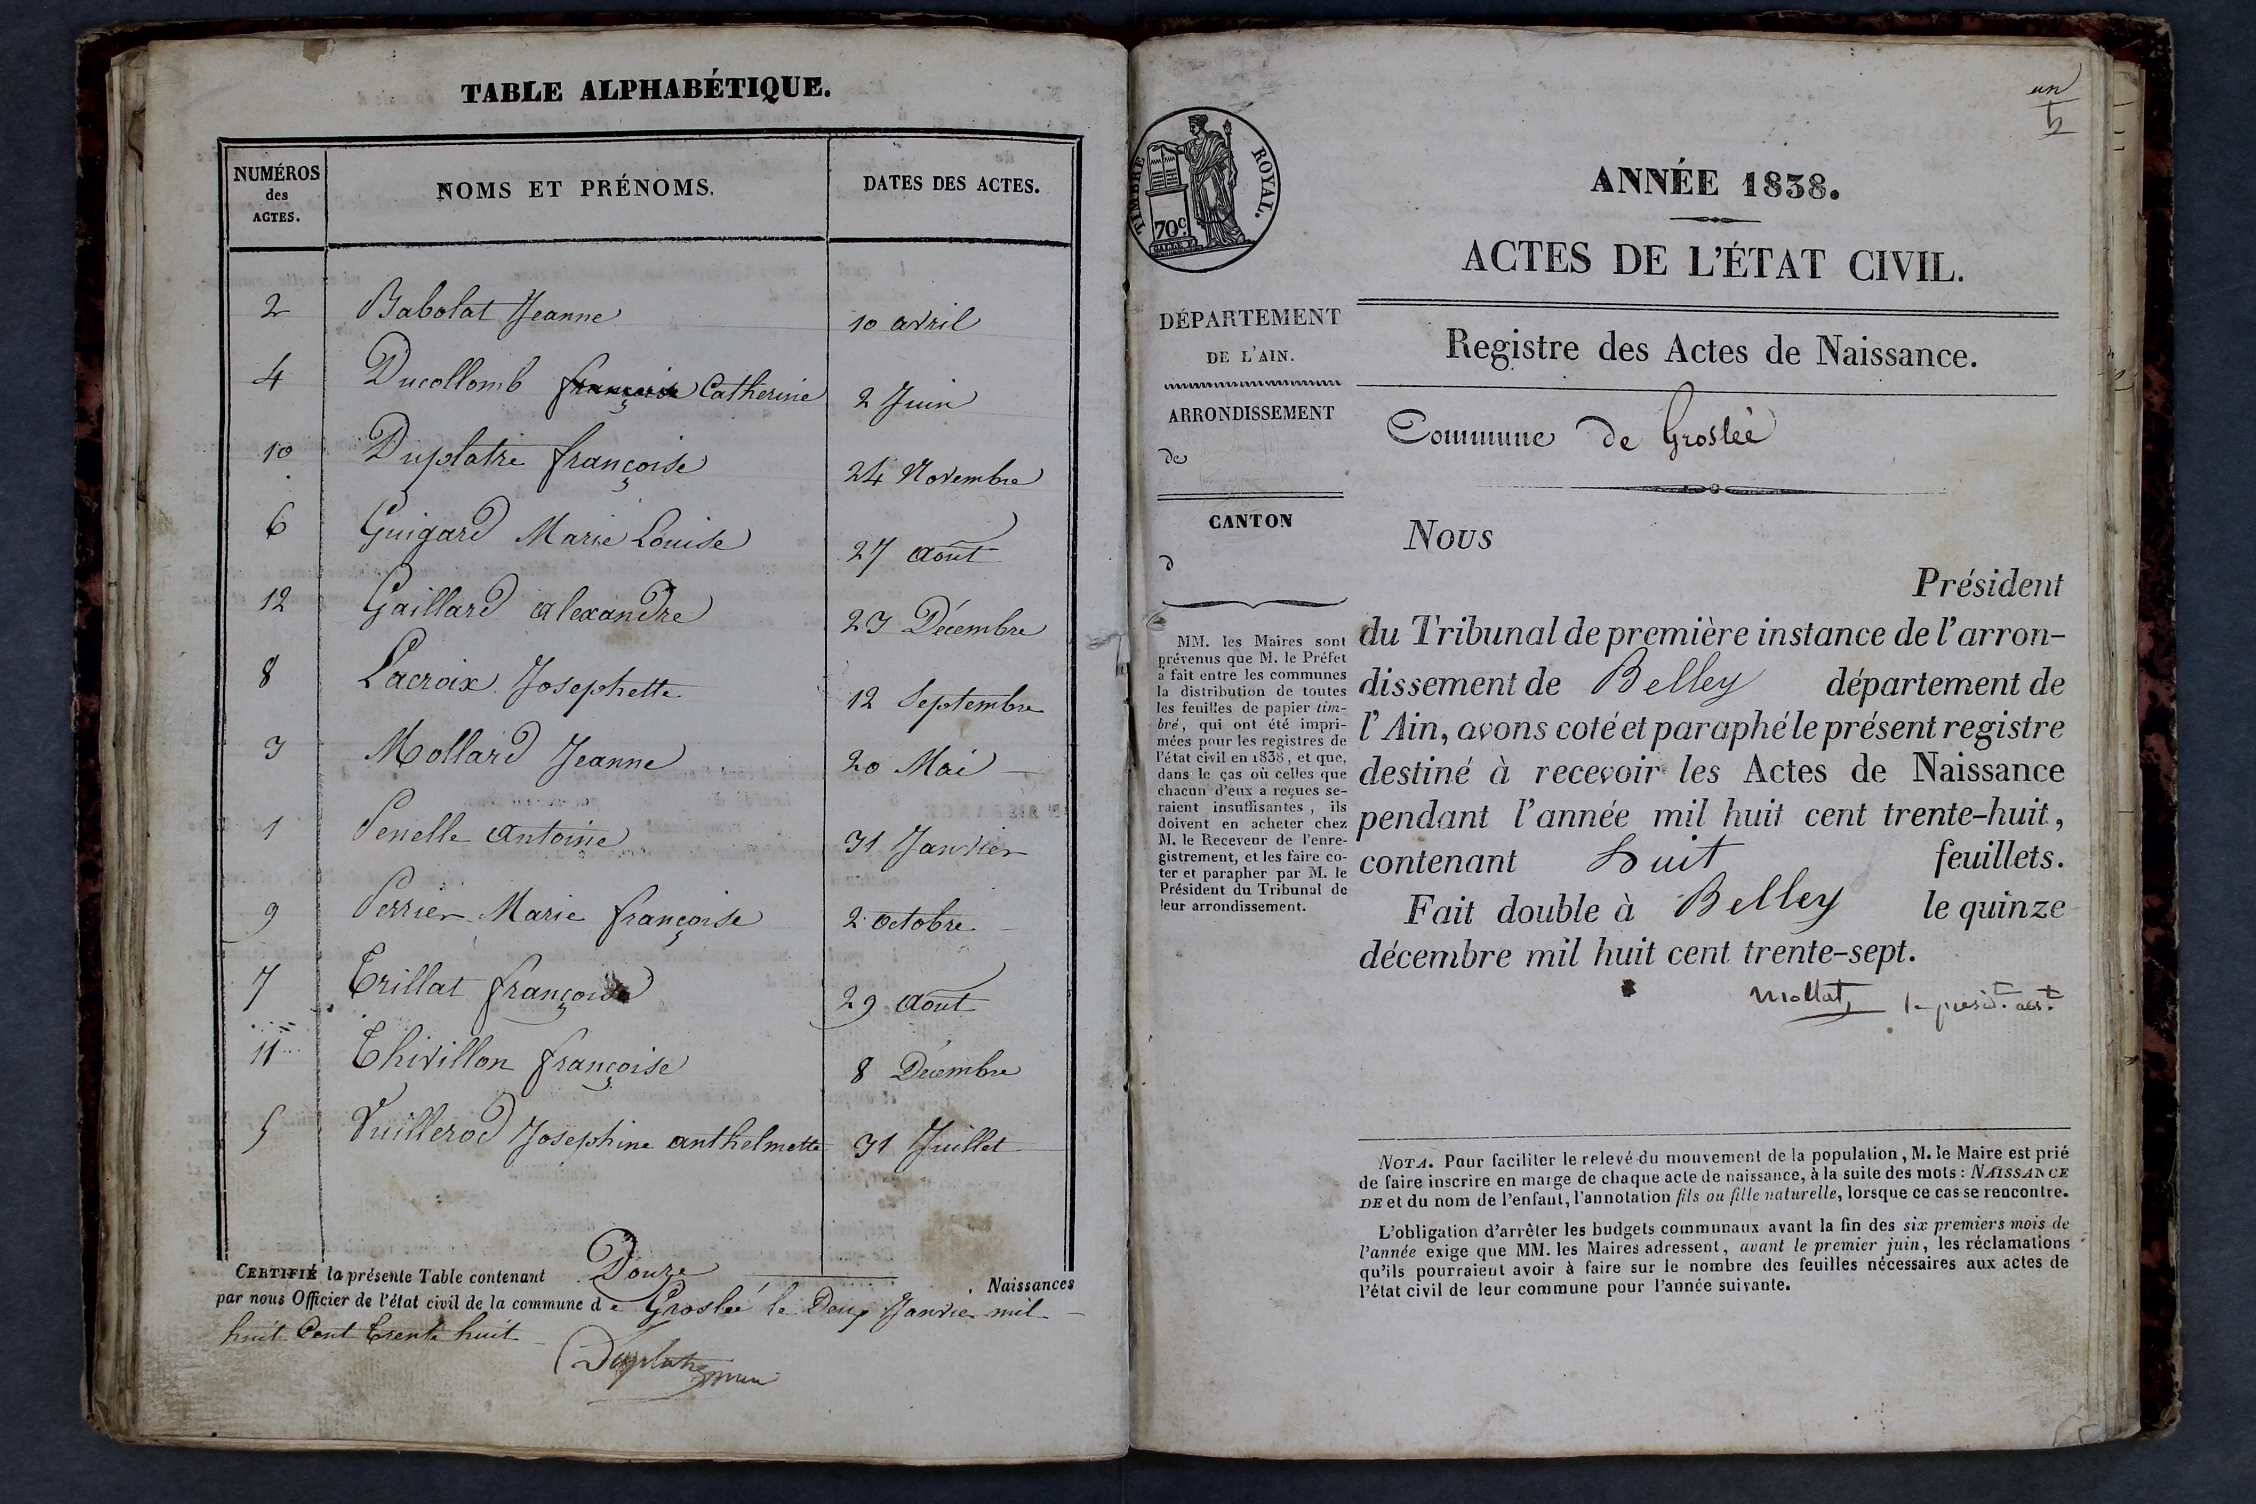 TABLE ALPHABÉTIQUE.
NUMÉROS des ACTES.
NOMS ET PRÉNOMS.
DATES DES ACTES.
2 Babolat Jeanne 10 avril
4 Ducollomb françoise Catherine 2 Juin
10 Duplatre françoise 24 Novembre
6 Guigard Marie Louise 27 aout
12 Gaillard alexandre 23 Décembre
8 Lacroix Josephette 12 Septembre
3 Mollard Jeanne 20 Mai
1 Penelle antoine 31 Janvier
9 Perrier Marie françoise 2 octobre
7 Trillat françoise 29 aout
11 Thivillon françoise 8 Décembre
5 Vuillerod Josephine anthelmette 31 Juillet
CERTIFIÉ la présente Table contenant Douze Naissances
par nous Officier de l'état civil de la commune de Groslée le Deux Janvier mil
huit Cent Trente huit
Duplatre
un
TIMBRE ROYAL.
70c.
ANNÉE 1838.
ACTES DE L'ÉTAT CIVIL.
DÉPARTEMENT
DE L'AIN.
ARRONDISSEMENT
de
CANTON
d
MM. les Maires sont
prévenus que M. le Préfet
a fait entre les communes
la distribution de toutes
les feuilles de papier tim-
bré, qui ont été impri-
mées pour les registres de
l'état civil en 1838, et que,
dans le cas où celles que
chacun d'eux a reçues se-
raient insuffisantes, ils
doivent en acheter chez
M. le Receveur de l'enre-
gistrement, et les faire co-
ter et parapher par M. le
Président du Tribunal de
leur arrondissement.
Registre des Actes de Naissance.
Commune de Groslée
Nous
Président
du Tribunal de première instance de l'arron-
dissement de Belley département de
l'Ain, avons coté et paraphé le présent registre
destiné à recevoir les Actes de Naissance
pendant l'année mil huit cent trente-huit,
contenant huit feuillets.
Fait double à Belley le quinze
décembre mil huit cent trente-sept.
Mollat
NOTA. Pour faciliter le relevé du mouvement de la population, M. le Maire est prié
de faire inscrire en marge de chaque acte de naissance, à la suite des mots : NAISSANCE
DE et du nom de l'enfant, l'annotation fils ou fille naturelle, lorsque ce cas se rencontre.
L'obligation d'arrêter les budgets communaux avant la fin des six premiers mois de
l'année exige que MM. les Maires adressent, avant le premier juin, les réclamations
qu'ils pourraient avoir à faire sur le nombre des feuilles nécessaires aux actes de
l'état civil de leur commune pour l'année suivante.